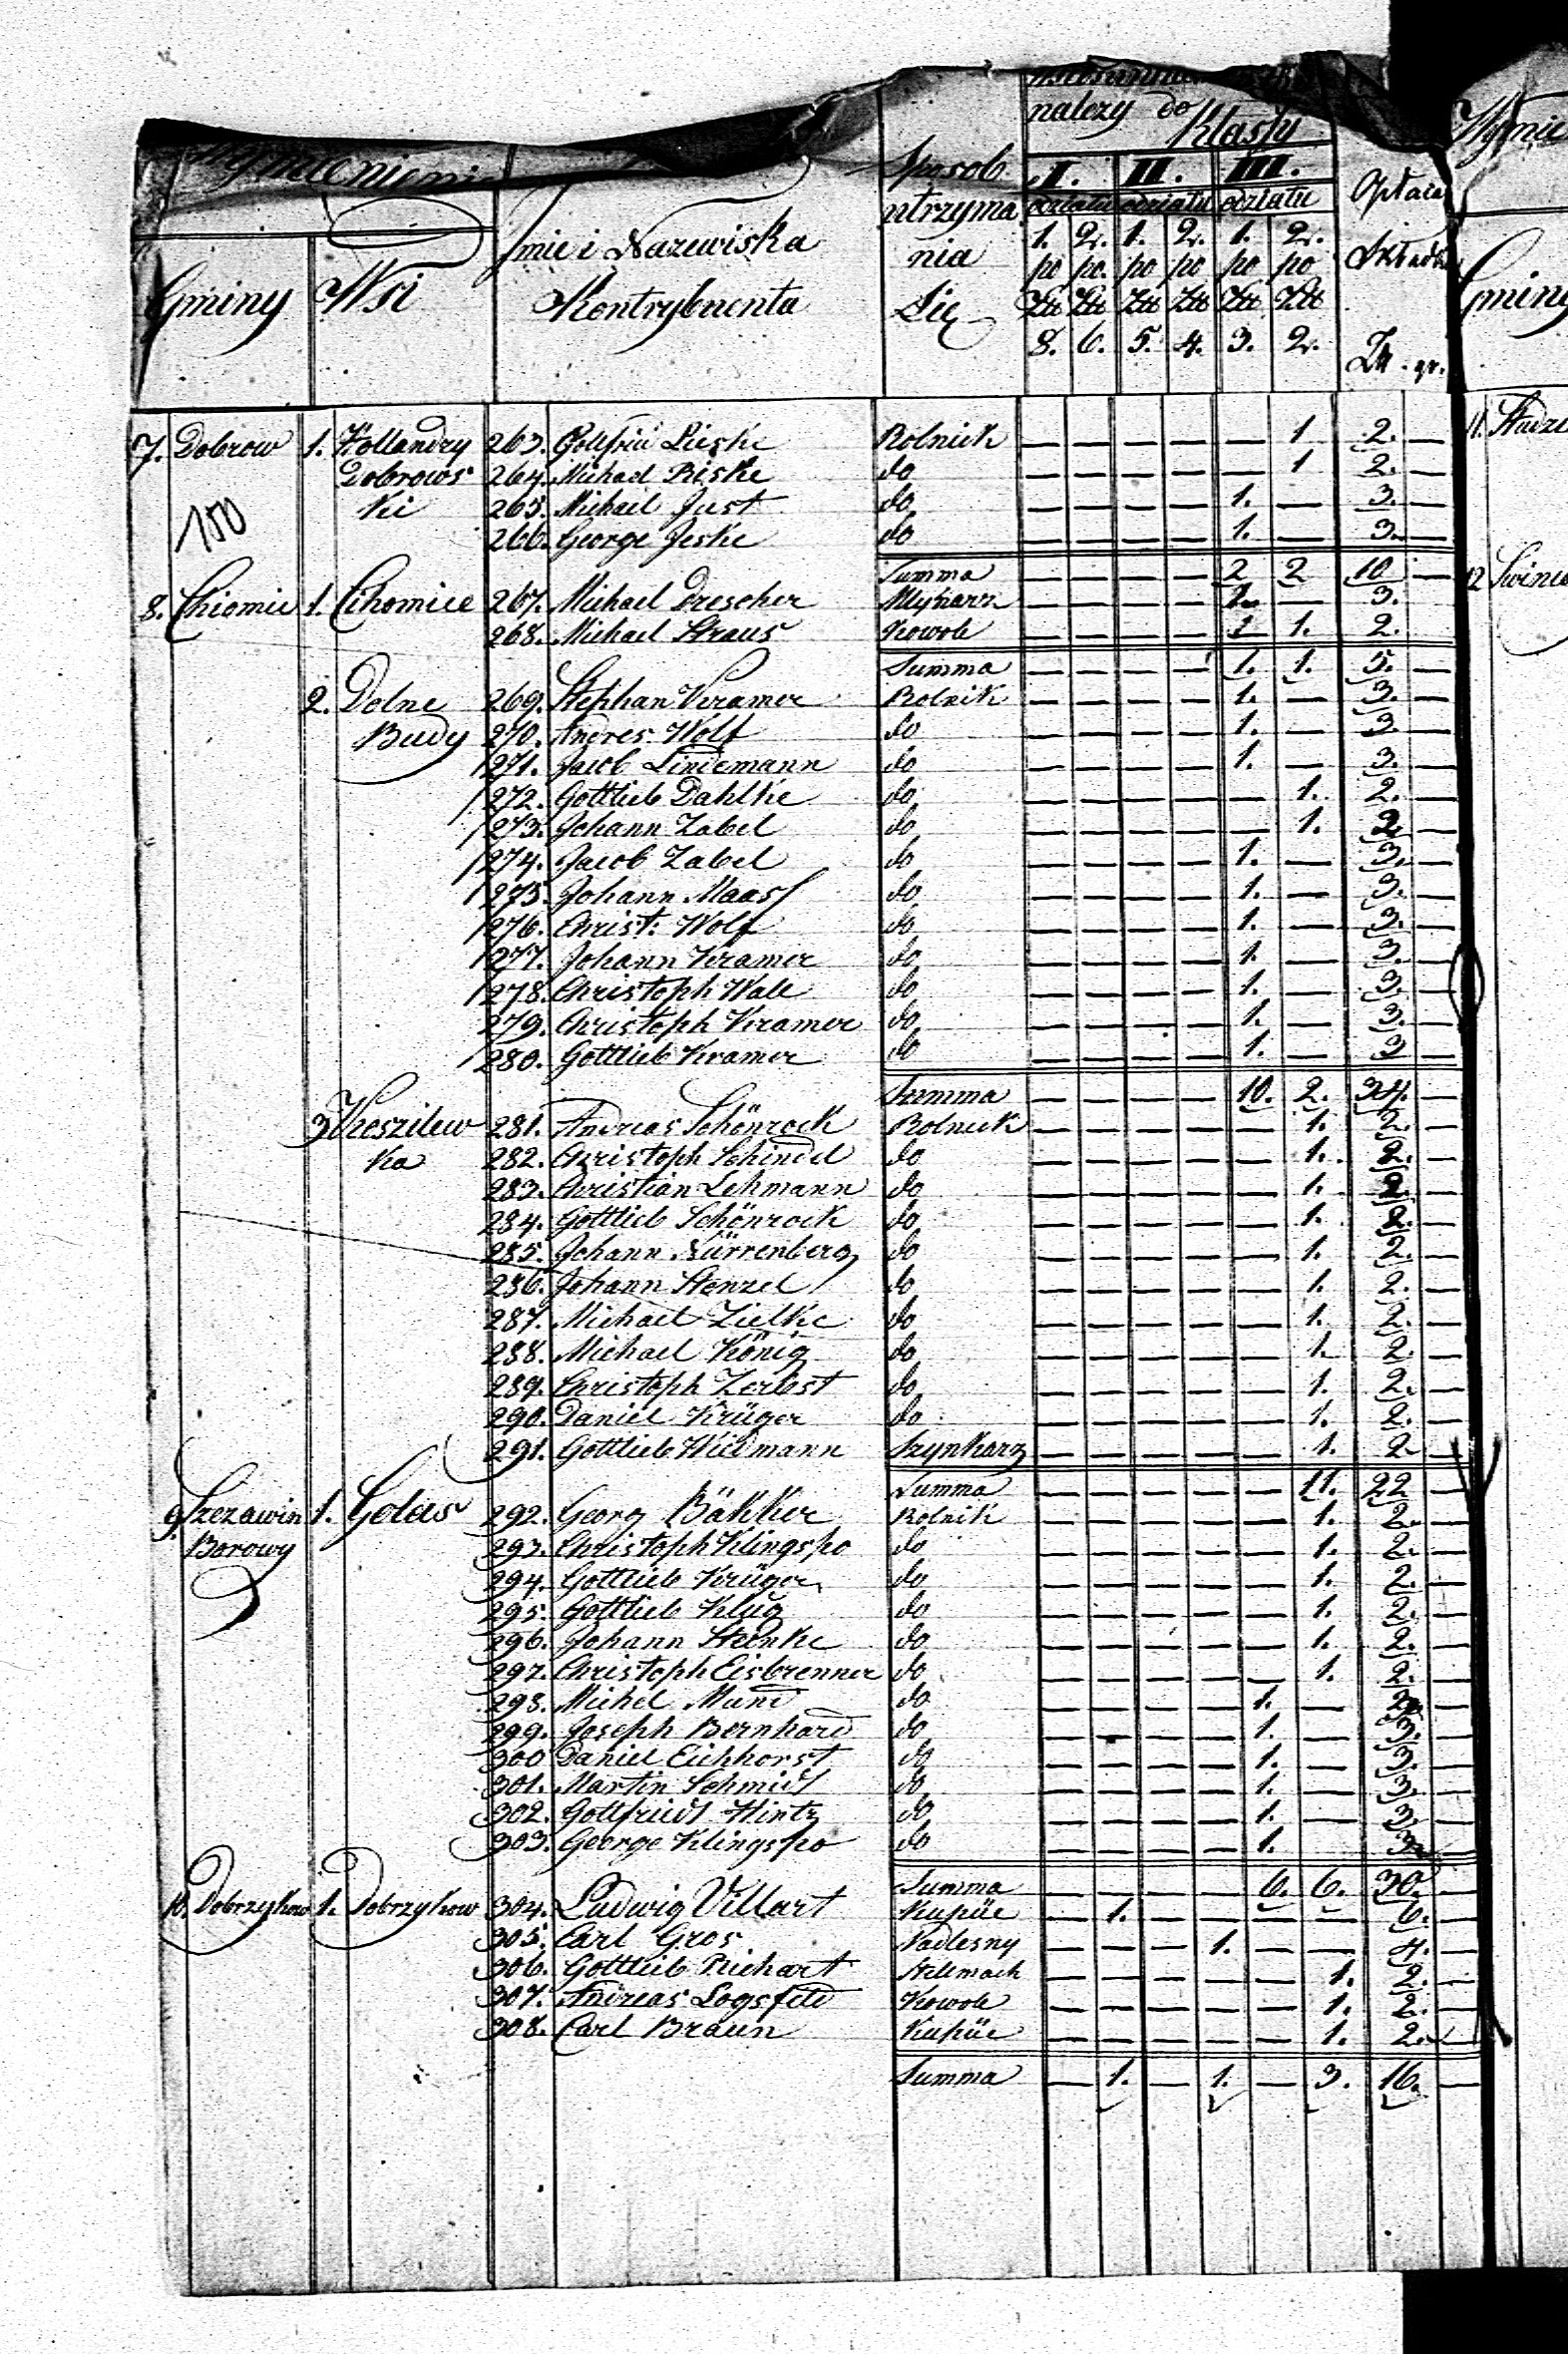 należy do Klassy
Wymienieni Sposob I. II. III. Opłaca Wymie
utrzyma oddziału oddziału oddziału
Imie i Nazewiska nia 1. 2. 1. 2. 1. 2. Składki
po po po po po po
Gminy Wsi Kontrybuenta Się Ztt Ztt Ztt Ztt Ztt Ztt Gminy
8. 6. 5. 4. 3. 2. Ztt. gr.
7. Dobrow 1. Hollandry 263. Gottfried Lieske Rolnick — — — — — 1 2. — 11.
Dobrows 264. Michael Rieske do — — — — — 1 2. —
150 kie 265. Michael Just do — — — — 1. — 3. —
266. George Jeske do — — — — 1. — 3. —
Summa — — — — 2 2 10 — 12
8. Chiomie 1. Cihomice 267. Michael Drescher Mlynarz — — — — 1. — 3. —
268. Michael Straus Kowole — — — — 1 1. 2. —
Summa — — — — 1. 1. 5. —
2. Dolne 269. Stephan Kramer Rolnik — — — — 1. — 3. —
Budy 270. Andres Wolf do — — — — 1. — 3. —
271. Jacob Lindemann do — — — — 1. — 3. —
272. Gottlieb Dahlke do — — — — — 1. 2. —
273. Johann Zabel do — — — — — 1. 2. —
274. Jacob Zabel do — — — — 1. — 3. —
275. Johann Maass do — — — — 1. — 3. —
276. Christ: Wolf do — — — — 1. — 3. —
277. Johann Kramer do — — — — 1. — 3. —
278. Christoph Wall do — — — — 1. — 3. —
279. Christoph Kramer do — — — — 1. — 3. —
280. Gottlieb Kramer do — — — — 1. — 3 —
Summa — — — — 10. 2. 34. —
3 Koszilew 281. Andreas Schönrock Rolnick — — — — — 1. 2. —
ka 282. Christoph Schindel do — — — — — 1. 2. —
283. Christian Lehmann do — — — — — 1. 2. —
284. Gottlieb Schönrock do — — — — — 1. 2. —
285. Johann Nürrenberg do — — — — — 1. 2. —
286. Johann Stenzel do — — — — — 1. 2. —
287. Michael Zielke do — — — — — 1. 2. —
288. Michael König do — — — — — 1. 2. —
289. Christoph Zerbst do — — — — — 1. 2. —
290. Daniel Krüger do — — — — — 1. 2. —
291. Gottlieb Wiedmann Szynkarz — — — — — 1. 2 —
Summa — — — — — 11. 22 —
9. Szczawin 1. Golas 292. Georg Bäkker Rolnik — — — — — 1. 2. —
Borowy 293. Christoph Klingspo do — — — — — 1. 2. —
294. Gottlieb Krüger do — — — — — 1. 2. —
295. Gottlieb Klug do — — — — — 1. 2. —
296. Johann Steinke do — — — — — 1. 2. —
297. Christoph Eisbrenner do — — — — — 1. 2. —
298. Michel Mund do — — — — 1. — —
299. Joseph Bernhard do — — — — 1. — 3. —
300 Daniel Eichhorst do — — — — 1. — 3. —
301. Martin Schmidt do — — — — 1. — 3. —
302. Gottfriedt Hintz do — — — — 1. — 3. —
303. George Klingspo do — — — — 1. — 3. —
Summa — — — — 6. 6. 30. —
10. Dobrzykow 1. Dobrzykow 304. Ludwig Villart Kupiie — 1. — — — — 6. —
305. Carl Gros Nadlesny — — — 1. — — 4. —
306. Gottlieb Richart Stellmach — — — — — 1. 2. —
307. Andreas Logsfeld Kowole — — — — — 1. 2. —
308. Carl Braun Kupiie — — — — — 1. 2. —
Summa — 1. — 1. — 3. 16. —